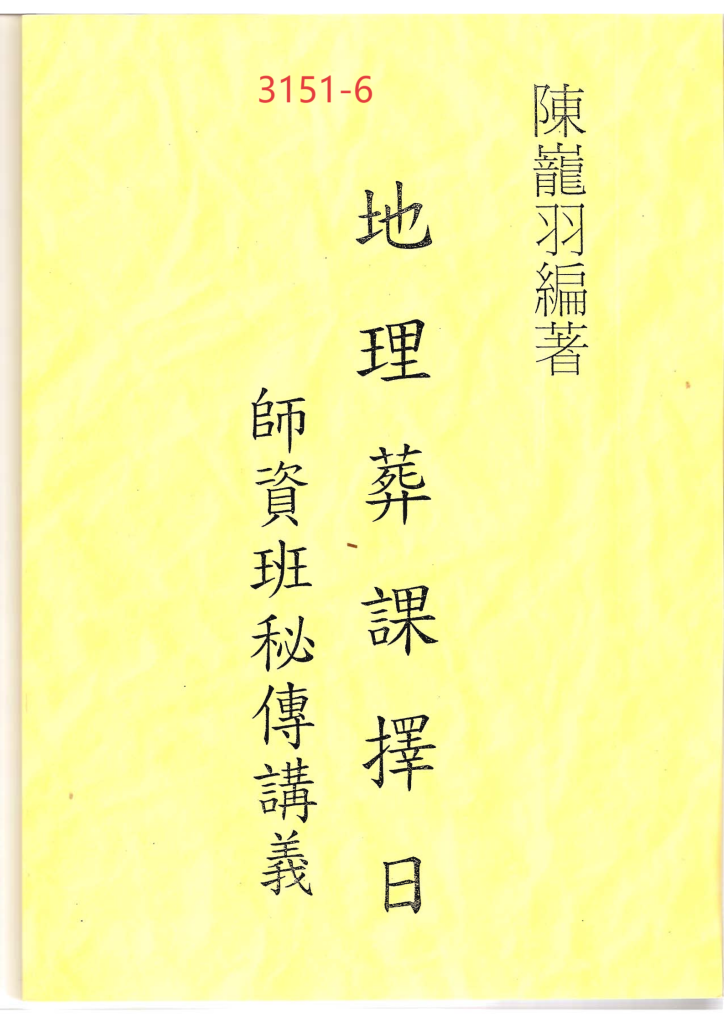 3151-6
陳巃羽編著
地理葬課擇日
師資班秘傳講義